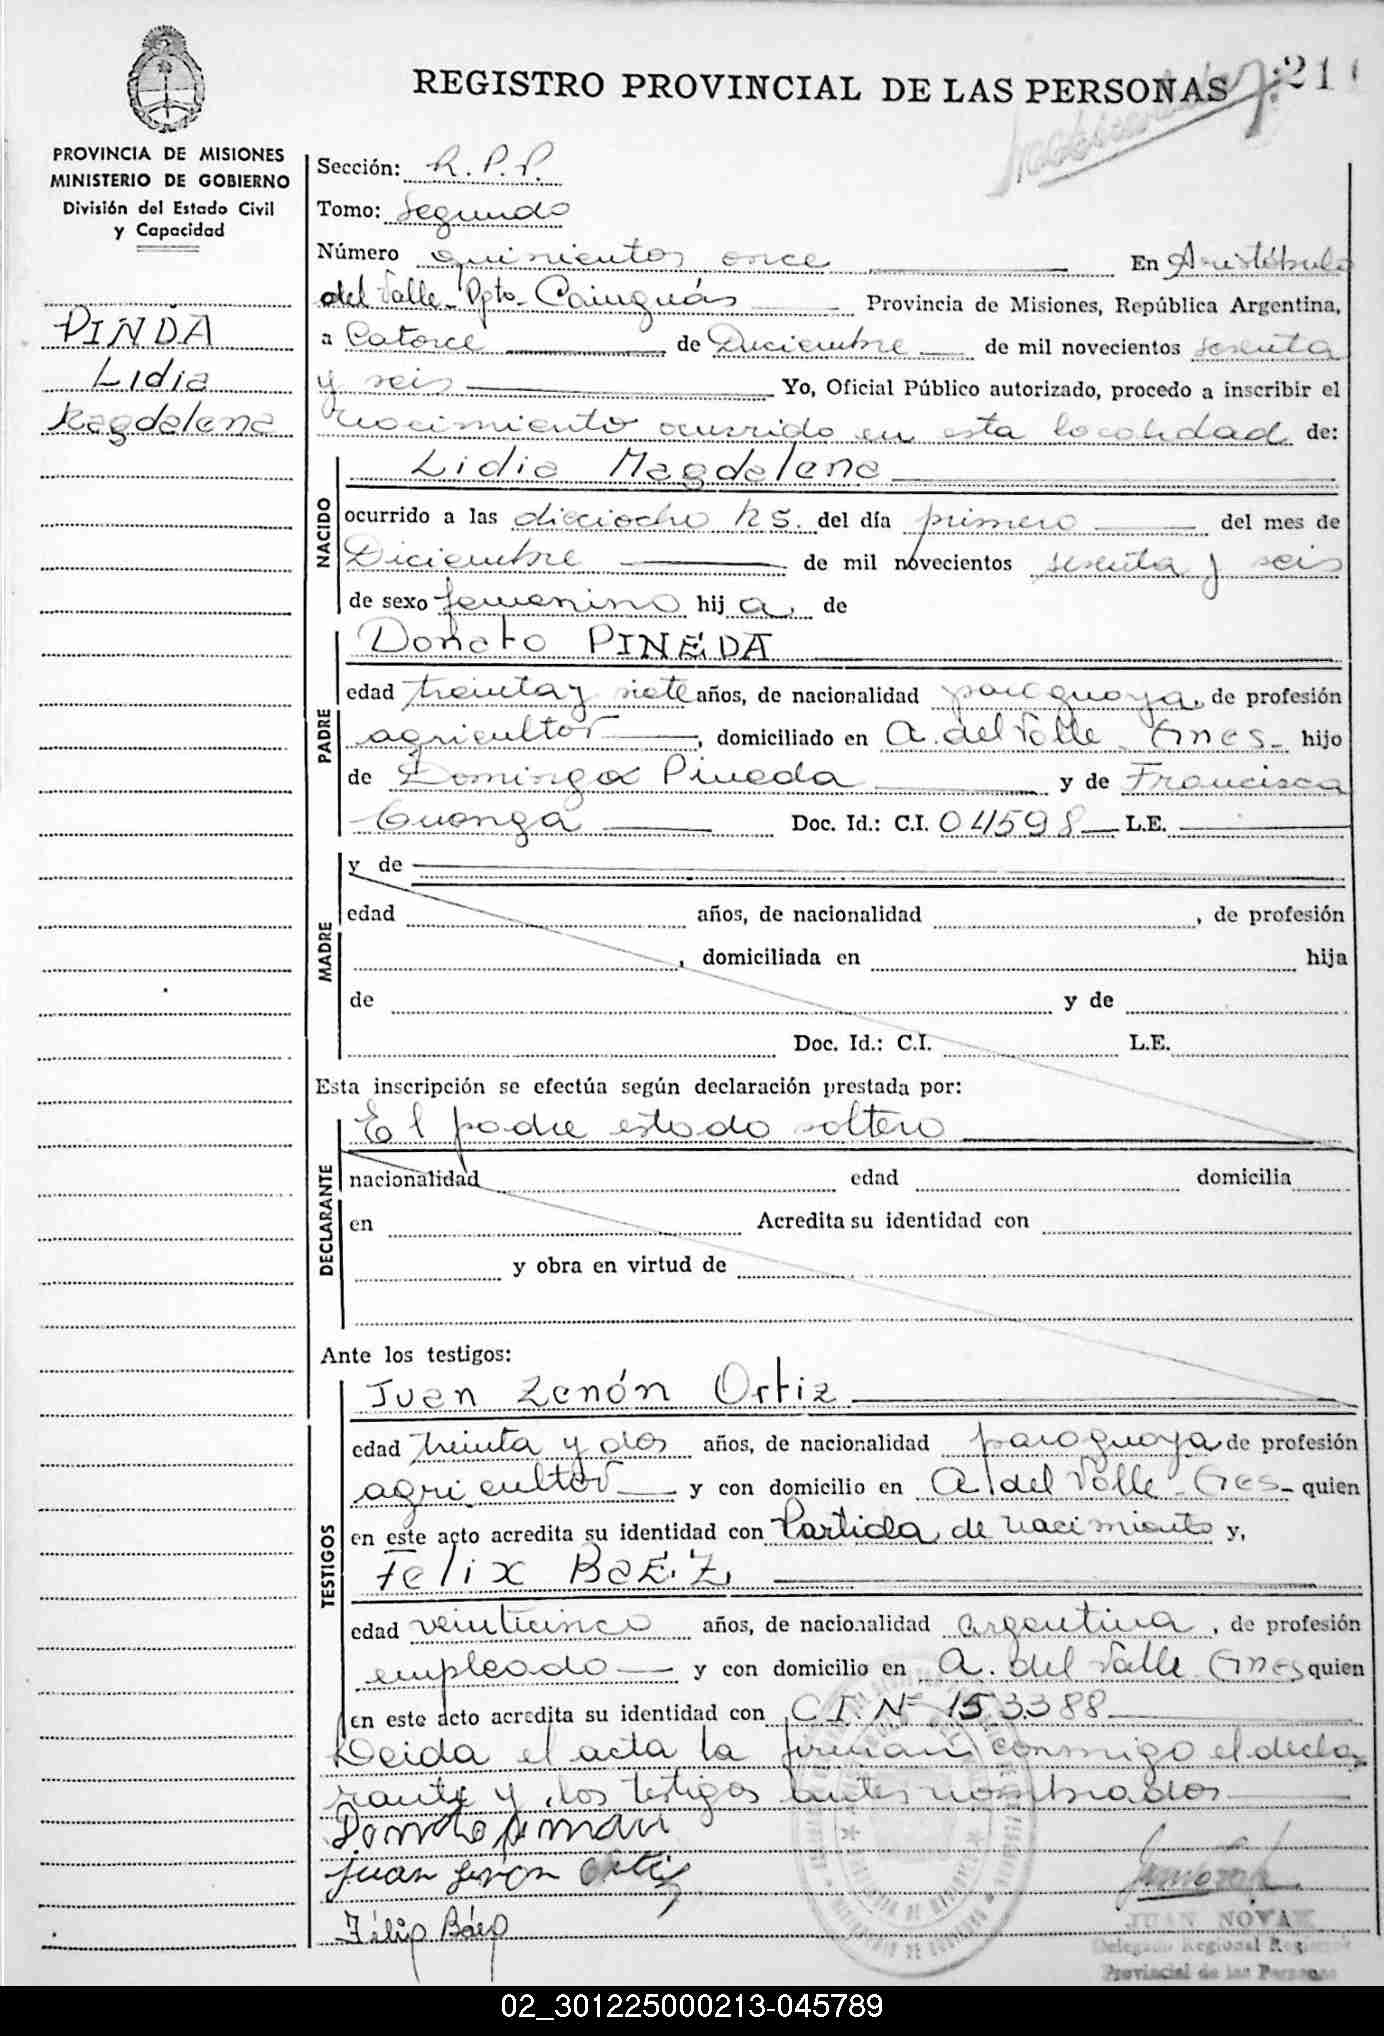 REGISTRO PROVINCIAL DE LAS PERSONAS
211
PROVINCIA DE MISIONES
MINISTERIO DE GOBIERNO
División del Estado Civil
y Capacidad
PINDA
Lidia
Magdalena
Sección: R.P.P.
Tomo: Segundo
Número quinientos once En Aristóbulo
del Valle Dpto. Cainguás Provincia de Misiones, República Argentina,
a Catorce de Diciembre de mil novecientos sesenta
y seis Yo, Oficial Público autorizado, procedo a inscribir el
nacimiento ocurrido en esta localidad de:
NACIDO
Lidia Magdalena
ocurrido a las dieciocho hs. del día primero del mes de
Diciembre de mil novecientos sesenta y seis
de sexo femenino hij a, de
PADRE
Donato PINEDA
edad treinta y siete años, de nacionalidad paraguaya, de profesión
agricultor, domiciliado en A. del Valle hijo
de Domingo Pineda y de Francisca
Doc. Id.: C.I. 04598 L.E.
MADRE
y de
edad años, de nacionalidad , de profesión
, domiciliada en hija
de y de
Doc. Id.: C.I. L.E.
Esta inscripción se efectúa según declaración prestada por:
DECLARANTE
El padre estado soltero
nacionalidad edad domicilia
en Acredita su identidad con
y obra en virtud de
Ante los testigos:
TESTIGOS
Juan Zenón Ortiz
edad treinta y dos años, de nacionalidad paraguaya de profesión
agricultor y con domicilio en A. del Valle quien
en este acto acredita su identidad con Partida de nacimiento y,
Felix BaEZ
edad veinticinco años, de nacionalidad argentina, de profesión
empleado y con domicilio en A. del Valle quien
en este acto acredita su identidad con C.I. Nº 153388
Leida el acta la firman conmigo el decla
rante y los testigos antes nombrados
Juan Ortiz
Báez
JUAN NOVAK
Delegado Regional Registro
Provincial de las Personas
02_301225000213-045789